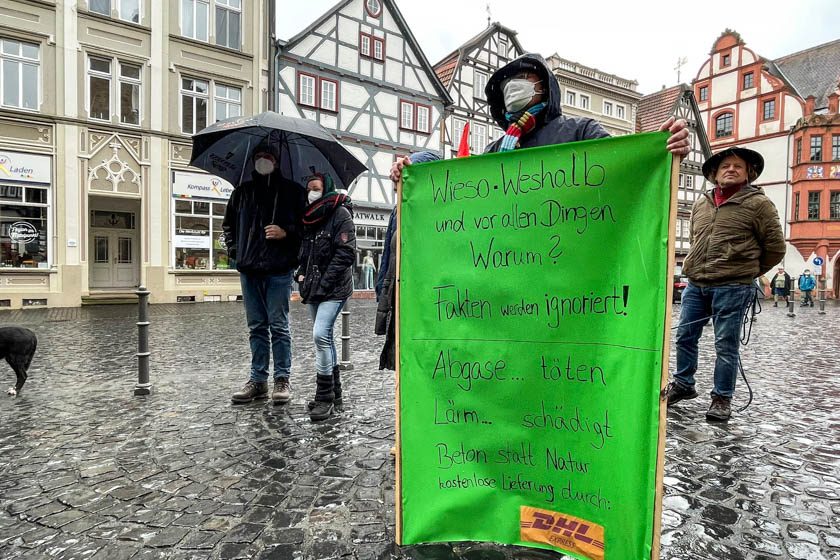 Laden
Kompass Leben
ATWALK
Wieso • Weshalb
und vor allen Dingen
Warum?
Fakten werden ignoriert!
Abgase... töten
Lärm... schädigt
Beton statt Natur
kostenlose Lieferung durch:
DHL
EXPRESS